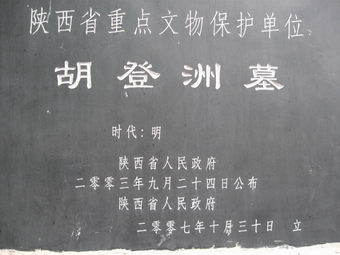 陕西省重点文物保护单位
胡登洲墓
时代:明
陕西省人民政府
二零零三年九月二十四日公布
陕西省人民政府
二零零七年十月三十日 立